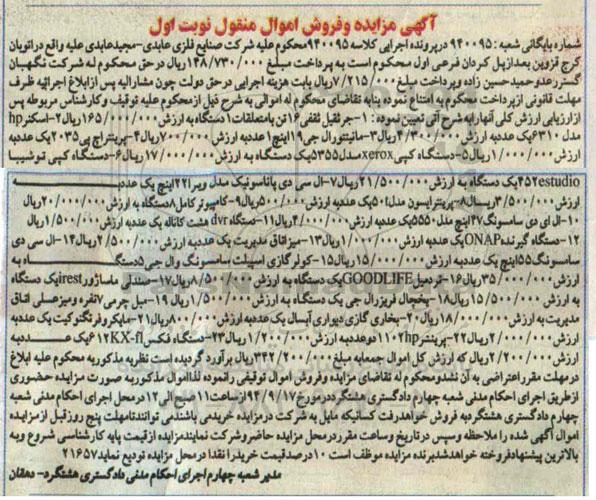 آگهی مزایده وفروش اموال منقول نوبت اول
شماره بایگانی شعبه : ۹۴۰۰۹۵ درپرونده اجرایی کلاسه ۹۴۰۰۹۵محکوم علیه شرکت صنایع فلزی عابدی-مجیدعابدی علیه واقع دراتوبان
کرج قزوین بعدازپل کردان فرعی اول محکوم است به پرداخت مبلغ ۱۴۸/۷۳۰/۰۰۰ریال درحق محکوم له شرکت نگهبان
گستررعدوحمیدحسین زاده وپرداخت مبلغ ۷/۲۱۵/۰۰۰ریال بابت هزینه اجرایی درحق دولت چون مشارالیه پس ازابلاغ اجرائیه ظرف
مهلت قانونی ازپرداخت محکوم به امتناع نموده بنابه تقاضای محکوم له اموالی به شرح ذیل ازمحکوم علیه توقیف وکارشناس مربوطه پس
ازارزیابی ارزش کلی آنهارابه شرح آتی تعیین نموده : ۱-جرثقیل ثقفی ۱۶تن بامتعلقات۱دستگاه به ارزش ۱۶۵/۰۰۰/۰۰۰ریال۲-اسکنرhp
مدل ۶۳۱۰یک عددبه ارزش ۴/۳۰۰/۰۰۰ریال۳-مانیتورال جی۱۹اینچ۱عددبه ارزش ۷۰۰/۰۰۰ریال۴-پرینتراچ پی۲۰۳۵یک عددبه
ارزش ۱/۰۰۰/۰۰۰ریال۵-دستگاه کپیxeroxمدل۵۳۵۵یک دستگاه به ارزش ۱۷/۰۰۰/۰۰۰ریال۶-دستگاه کپی توشیبا
۴۵۲estudioیک دستگاه به ارزش ۲۱/۵۰۰/۰۰۰ریال۷-ال سی دی پاناسونیک مدل ویرا۲۲اینچ یک عددبه
ارزش ۳/۵۰۰/۰۰۰ریال۸-پرینتراپسون مدل۵۰ یک عددبه ارزش ۵۰۰/۰۰۰ریال۹-کامپیوترکامل۸دستگاه به ارزش ۲۰/۰۰۰/۰۰۰ریال
۱۰-ال ای دی سامسونگ۴۷اینچ مدل۵۵۵۰یک عددبه ارزش ۴/۰۰۰/۰۰۰ریال۱۱-دستگاهdvr هشت کاناله یک عددبه ارزش ۱/۵۰۰/۰۰۰ریال
۱۲-دستگاه گیرندهONAPیک عددبه ارزش ۱/۰۰۰/۰۰۰ریال۱۳-میزاتاق مدیریت یک عددبه ارزش ۲/۵۰۰/۰۰۰ریال۱۴-ال سی دی
سامسونگ۵۵اینچ یک عددبه ارزش ۱۵/۰۰۰/۰۰۰ریال۱۵-کولرگازی اسپیلت سامسونگ وال جی۵دستگاه به
ارزش ۳۵/۰۰۰/۰۰۰ریال۱۶-تردمیل GOODLIFEیک دستگاه به ارزش ۸/۵۰۰/۰۰۰ریال۱۷-صندلی ماساژورirestیک دستگاه
به ارزش ۱۵/۵۰۰/۰۰۰ریال۱۸-یخچال فریزرال جی یک دستگاه به ارزش ۱/۵۰۰/۰۰۰ریال۱۹-مبل چرمی ۷نفره ومیزعسلی اتاق
مدیریت به ارزش ۱۸/۰۰۰/۰۰۰ریال۲۰-بخاری گازی دیواری آبسال یک عددبه ارزش ۸۰۰/۰۰۰ریال۲۱-مایکروفرتکنوکیت یک عددبه
ارزش ۲/۰۰۰/۰۰۰ریال۲۲-پرینترhp۱۱۰۲دوعددبه ارزش ۱/۲۰۰/۰۰۰ریال۲۳-دستگاه فکس۶۱۲KX-flیک عددبه
ارزش ۲/۲۰۰/۰۰۰ریال که ارزش کل اموال جمعابه مبلغ ۳۴۲/۲۰۰/۰۰۰ریال برآورد گردیده است نظریه مذکوربه محکوم علیه ابلاغ
درمهلت مقرراعتراضی به آن نشدومحکوم له تقاضای مزایده وفروش اموال توقیفی رانموده لذااموال مذکوربه صورت مزایده حضوری
ازطریق اجرای احکام مدنی شعبه چهارم دادگستری هشتگرددرمورخ ۹۴/۹/۱۷ازساعت ۱۱صبح الی۱۲درمحل اجرای احکام مدنی شعبه
چهارم دادگستری هشتگردبه فروش خواهدرفت کسانیکه مایل به شرکت درمزایده خریدمی باشندمی توانندتامهلت پنج روزقبل ازمزایده
اموال آگهی شده را ملاحظه وسپس درتاریخ وساعت مقرردرمحل مزایده حاضروشرکت نمایندمزایده ازقیمت پایه کارشناسی شروع وبه
بالاترین پیشنهادفروخته خواهدشدبرنده مزایده موظف است ۱۰درصدقیمت خریدرانقدا درمحل مزایده تودیع نماید۲۱۶۵۷
مدیر شعبه چهارم اجرای احکام مدنی دادگستری هشتگرد- دهقان